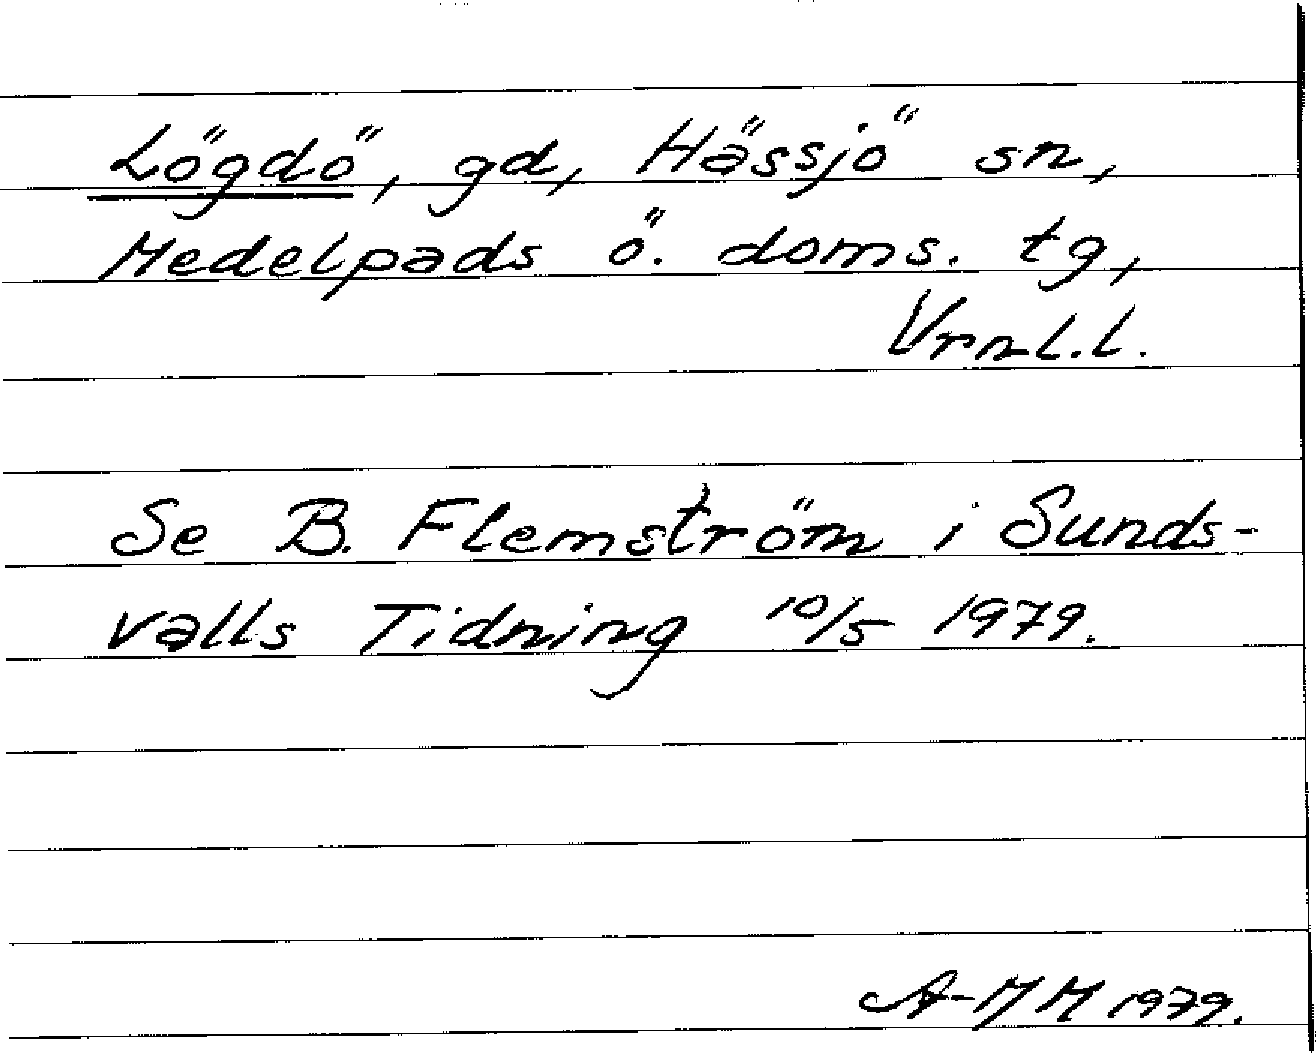 Lögdö, gd, Hässjö sn,
Medelpads ö. doms. tg,
Vrnl.l.
Se B. Flemström i Sunds-
valls Tidning 10/5 1979.
A-MM 1979.